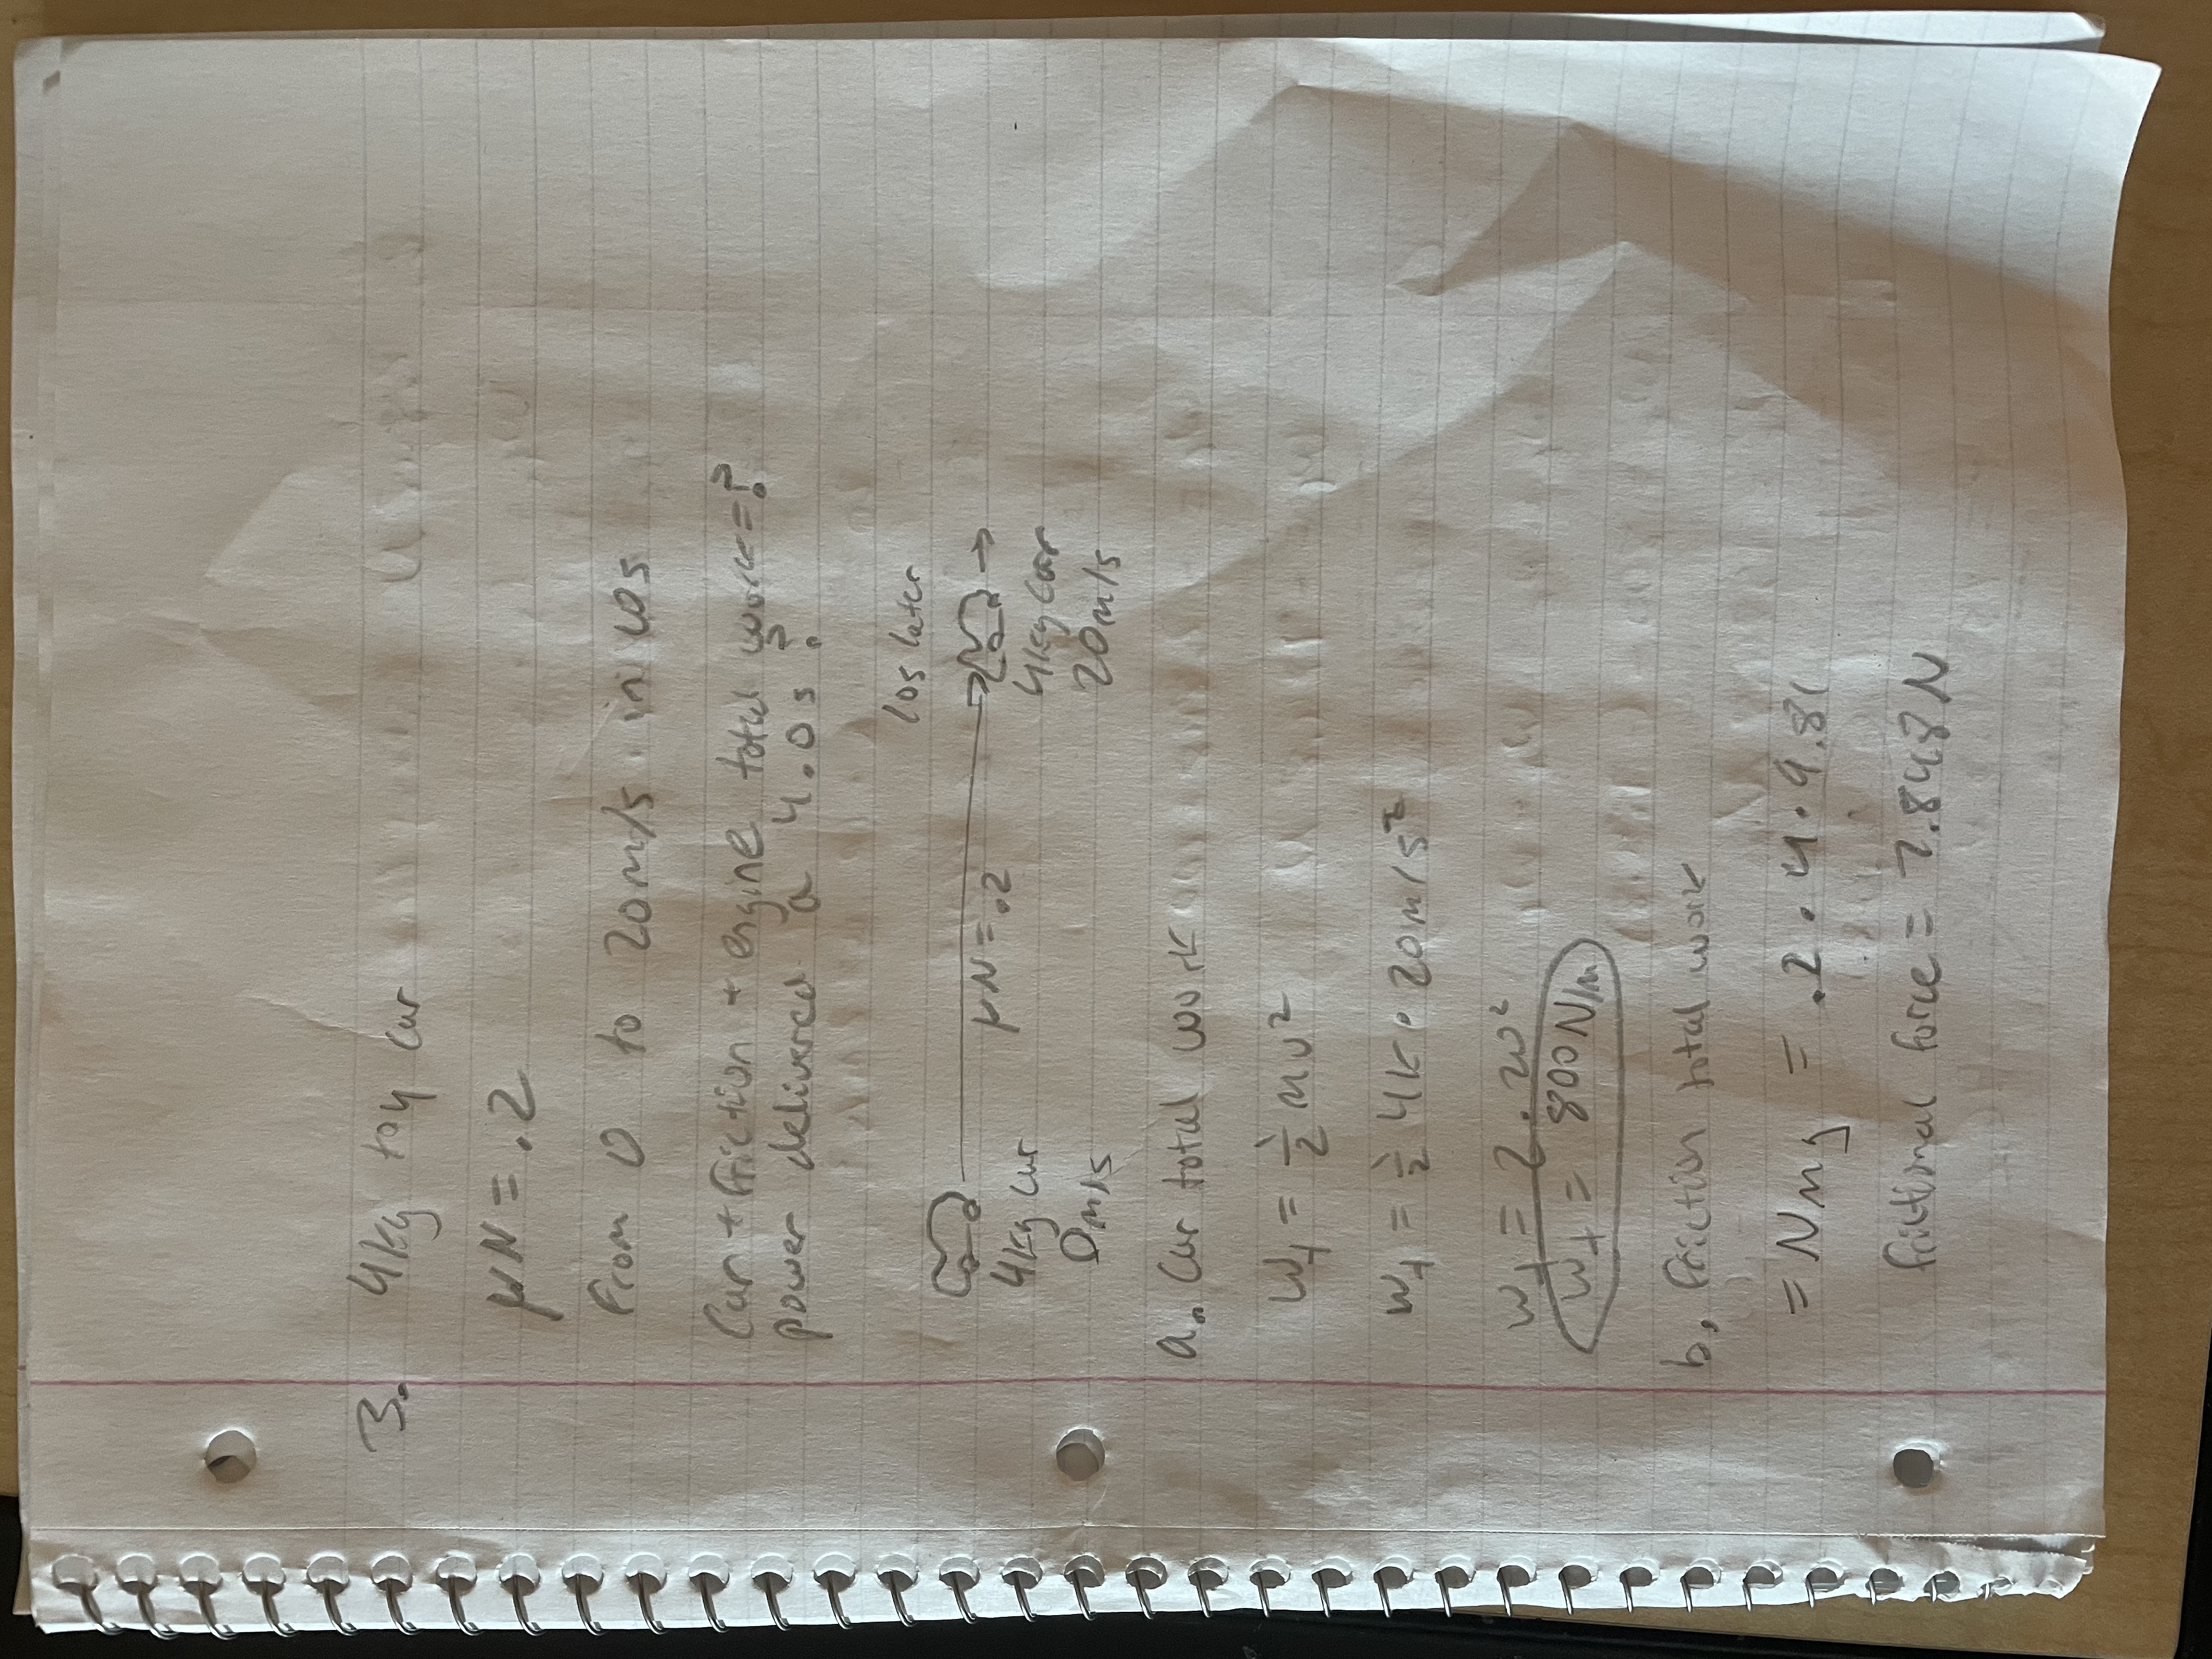 3. 4kg toy car
μN = .2
From 0 to 20m/s in 10s
Car + friction + engine total work=?
power delivered a 4.0s?
10s later
μN = .2
4kg car 4kg car
0m/s 20m/s
a. Car total work
Wt = ½ mv²
Wt = ½ 4k · 20m/s²
Wt = 2 · 20²
Wt = 800 N/m
b. friction total work
= Nmg = .2 · 4 · 9.81
frictional force = 7.848N